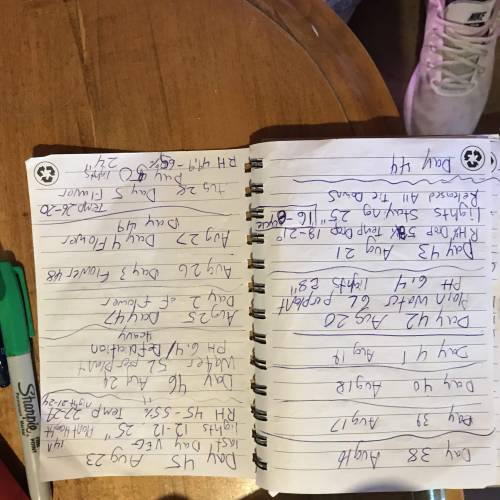 Day 38 Aug 16
Day 39 Aug 17
Day 40 Aug 18
Day 41 Aug 19
Day 42 Aug 20
Plain Water 6L per plant
PH 6.4 lights 28"
Day 43 Aug 21
RH Drop Temp Drop 19-21°
lights Staying 25" 16-8 cycle
Released All Tie Downs
Day 44
Day 45 Aug 23
last Day VEG
lights 12-12, 25", Plant Height 14"
RH 45-55% Temp 22-27
night 21-24
Day 46 Aug 24
Water 5L per plant
PH 6.4 / Defoliation
Heavy
Aug 25 Day 47
Day 2 of flower
Aug 26 Day 3 Flower 48
Aug 27 Day 4 Flower
Day 49
Temp 26-20
Aug 28 Day 5 Flower
Day 50 lights
RH 49.9-60% 24"
Sharpie
NIKE